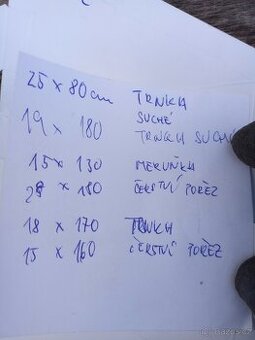 25 x 80cm TRNKA
SUCHÉ
19 x 180 TRNKA SUCHÉ
15 x 130 MERUŇKA
28 x 180 ČERSTVÍ POŘEZ
18 x 170 TRNKA
15 x 160 ČERSTVÍ POŘEZ